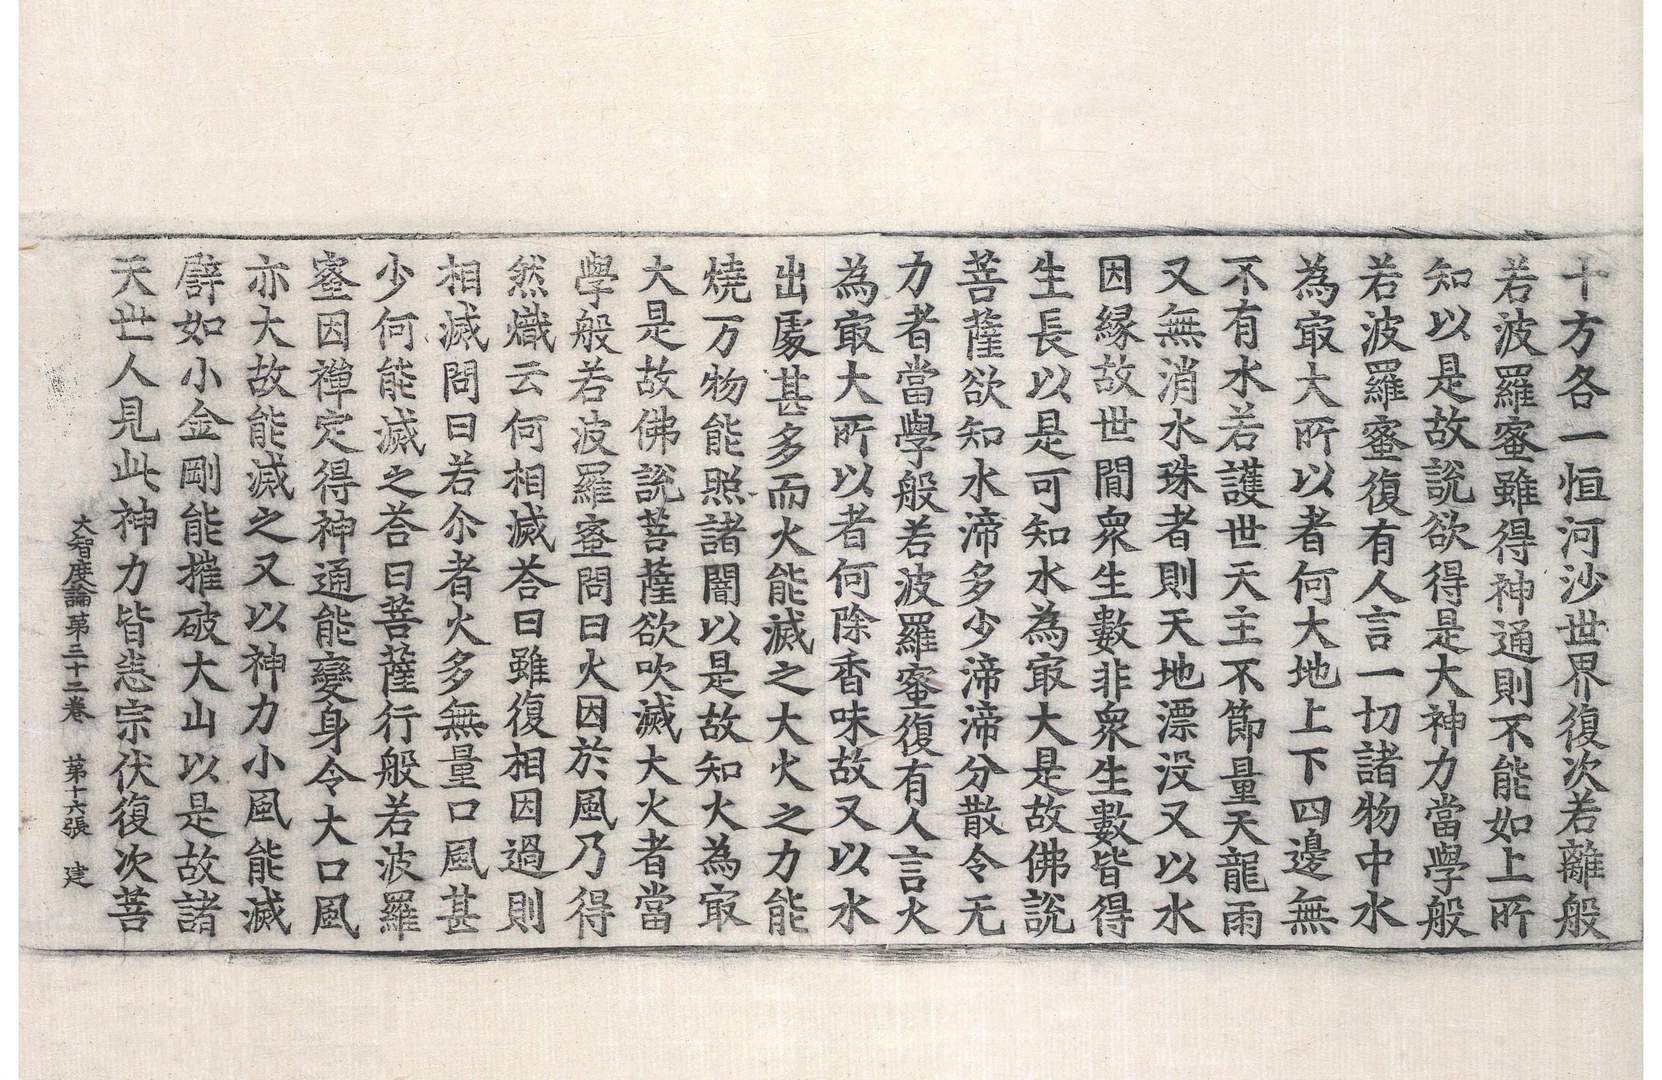 十方各一恒河沙世界復次若離般
若波羅蜜雖得神通則不能如上所
知以是故說欲得是大神力當學般
若波羅蜜復有人言一切諸物中水
為㝡大所以者何大地上下四邊無
不有水若護世天主不節量天龍雨
又無消水珠者則天地漂没又以水
因緣故世間衆生數非衆生數皆得
生長以是可知水為㝡大是故佛說
菩薩欲知水渧多少渧渧分散令无
力者當學般若波羅蜜復有人言火
為㝡大所以者何除香味故又以水
出處甚多而火能滅之大火之力能
燒万物能照諸闇以是故知火為㝡
大是故佛說菩薩欲吹滅大火者當
學般若波羅蜜問曰火因於風乃得
然熾云何相滅荅曰雖復相因過則
相滅問曰若尒者火多無量口風甚
少何能滅之荅曰菩薩行般若波羅
蜜因禪定得神通能變身令大口風
亦大故能滅之又以神力小風能滅
譬如小金剛能摧破大山以是故諸
天世人見此神力皆悉宗伏復次菩
大智度論第三十二卷 第十六張 建